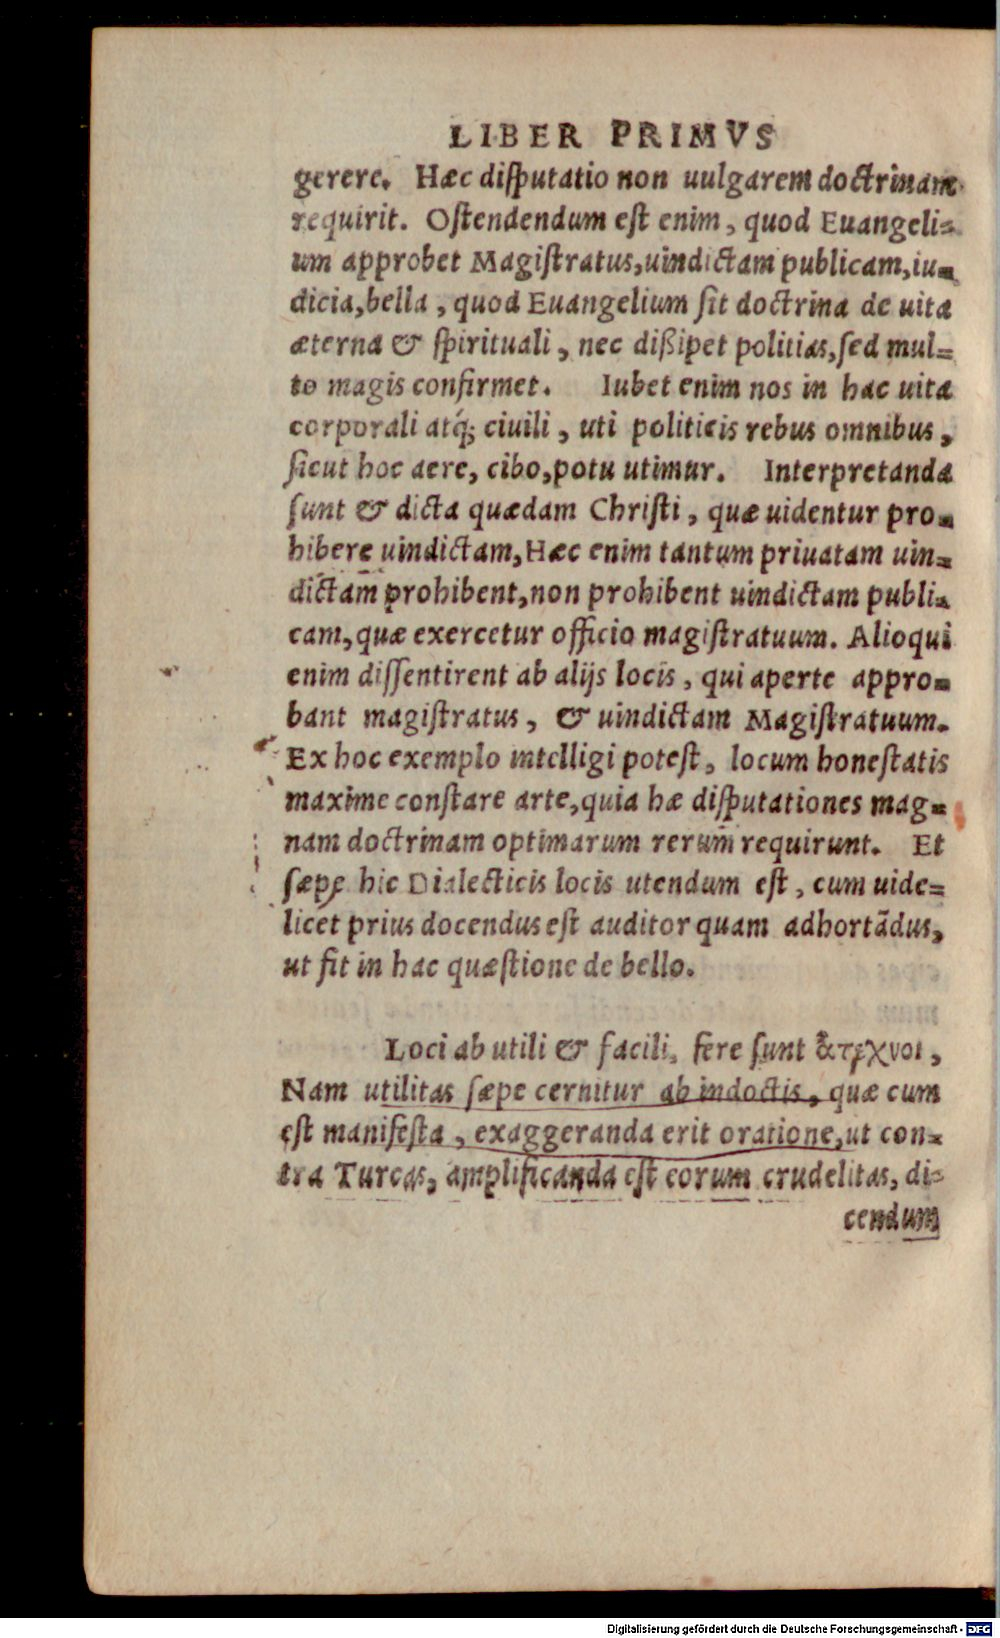 LIBER PRIMVS
gerere. Hæc diſputatio non uulgarem doctrinam
requirit. Oſtendendum eſt enim, quod Euangeli=
um approbet Magiſtratus, uindictam publicam, iu=
dicia, bella, quod Euangelium ſit doctrina de uita
æterna & ſpirituali, nec dißipet politias, ſed mul=
to magis confirmet. Iubet enim nos in hac uita
corporali atq́; ciuili, uti politicis rebus omnibus,
ſicut hoc aere, cibo, potu utimur. Interpretanda
ſunt & dicta quædam Chriſti, quæ uidentur pro=
hibere uindictam, Hæc enim tantum priuatam uin=
dictam prohibent, non prohibent uindictam publi=
cam, quæ exercetur officio magiſtratuum. Alioqui
enim diſſentirent ab alijs locis, qui aperte appro=
bant magiſtratus, & uindictam Magiſtratuum.
Ex hoc exemplo intelligi poteſt, locum honeſtatis
maxime conſtare arte, quia hæ diſputationes mag=
nam doctrinam optimarum rerum requirunt. Et
ſæpe hic Dialecticis locis utendum eſt, cum uide=
licet prius docendus eſt auditor quam adhortãdus,
ut fit in hac quæſtione de bello.
Loci ab utili & facili, fere ſunt ἄτεχνοι,
Nam utilitas ſæpe cernitur ab indoctis, quæ cum
eſt manifeſta, exaggeranda erit oratione, ut con=
tra Turcas, amplificanda eſt eorum crudelitas, di=
cendum
Digitalisierung gefördert durch die Deutsche Forschungsgemeinschaft - DFG